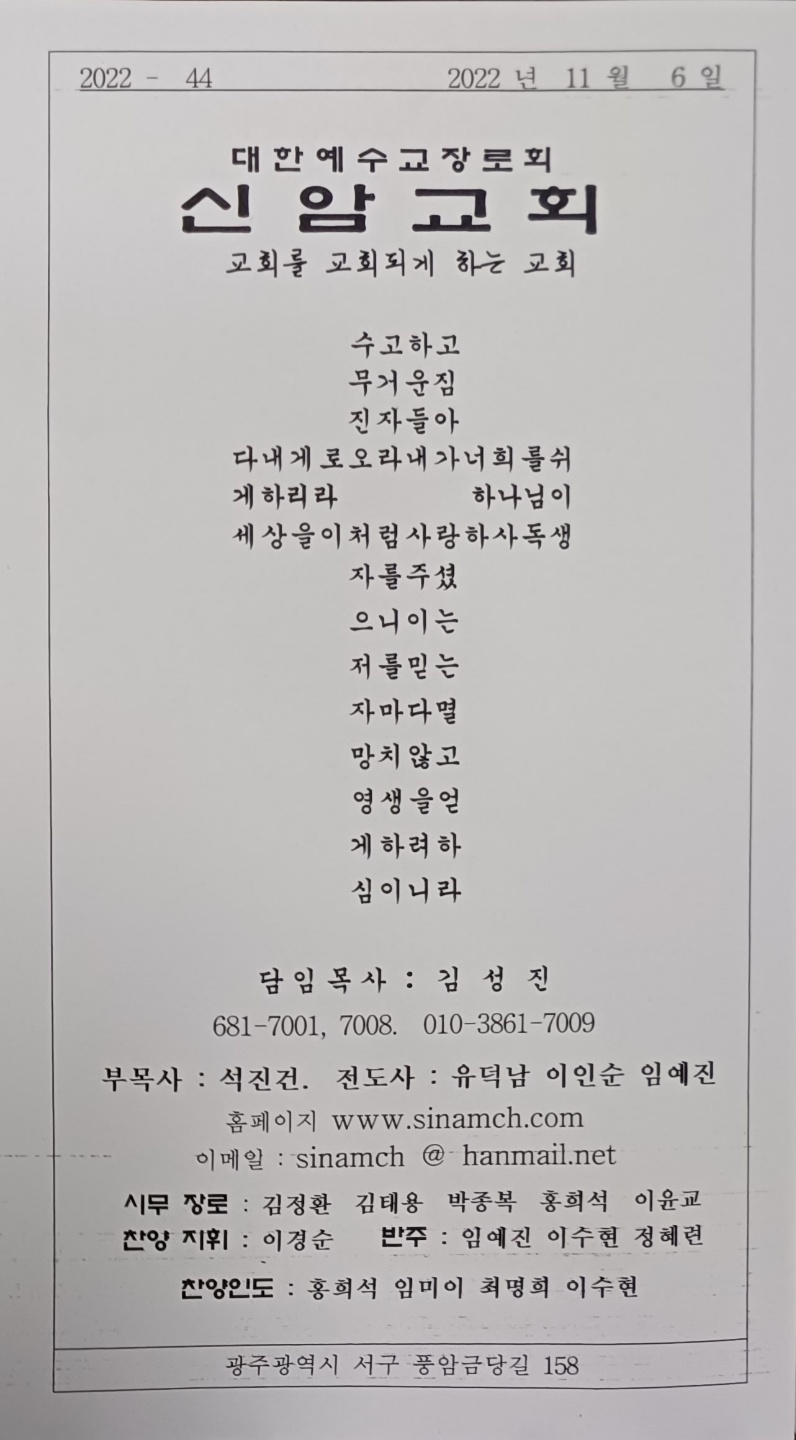 2022 - 44 2022 년 11 월 6 일
대한예수교장로회
신암교회
교회를 교회되게 하는 교회
수고하고
무거운짐
진자들아
다내게로오라내가너희를쉬
게하리라 하나님이
세상을이처럼사랑하사독생
자를주셨
으니이는
저를믿는
자마다멸
망치않고
영생을얻
게하려하
심이니라
담임목사 : 김 성 진
681-7001, 7008. 010-3861-7009
부목사 : 석진건. 전도사 : 유덕남 이인순 임예진
홈페이지 www.sinamch.com
이메일 : sinamch @ hanmail.net
시무 장로 : 김정환 김태용 박종복 홍희석 이윤교
찬양 지휘 : 이경순 반주 : 임예진 이수현 정혜련
찬양인도 : 홍희석 임미이 최명희 이수현
광주광역시 서구 풍암금당길 158